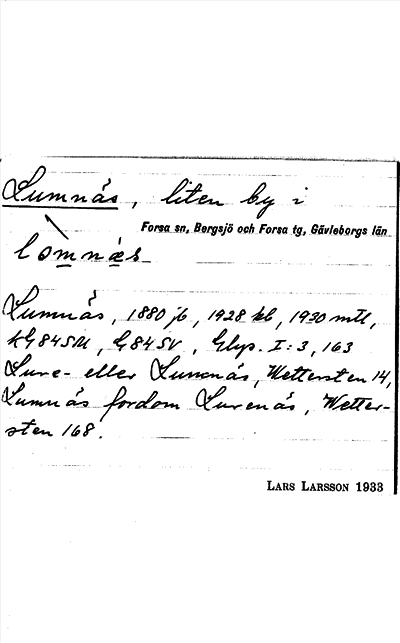 Lumnäs, liten by i
Forsa sn, Bergsjö och Forsa tg, Gävleborgs län
lomnæs
Lumnäs, 1880 jb, 1928 kb, 1930 mtl,
KG 84 SM, G 84 SV, Glyp. I:3, 163
Lure- eller Lumnäs, Wettersten 14,
Lumnäs fordom Lurenäs, Wetter-
sten 168.
LARS LARSSON 1933